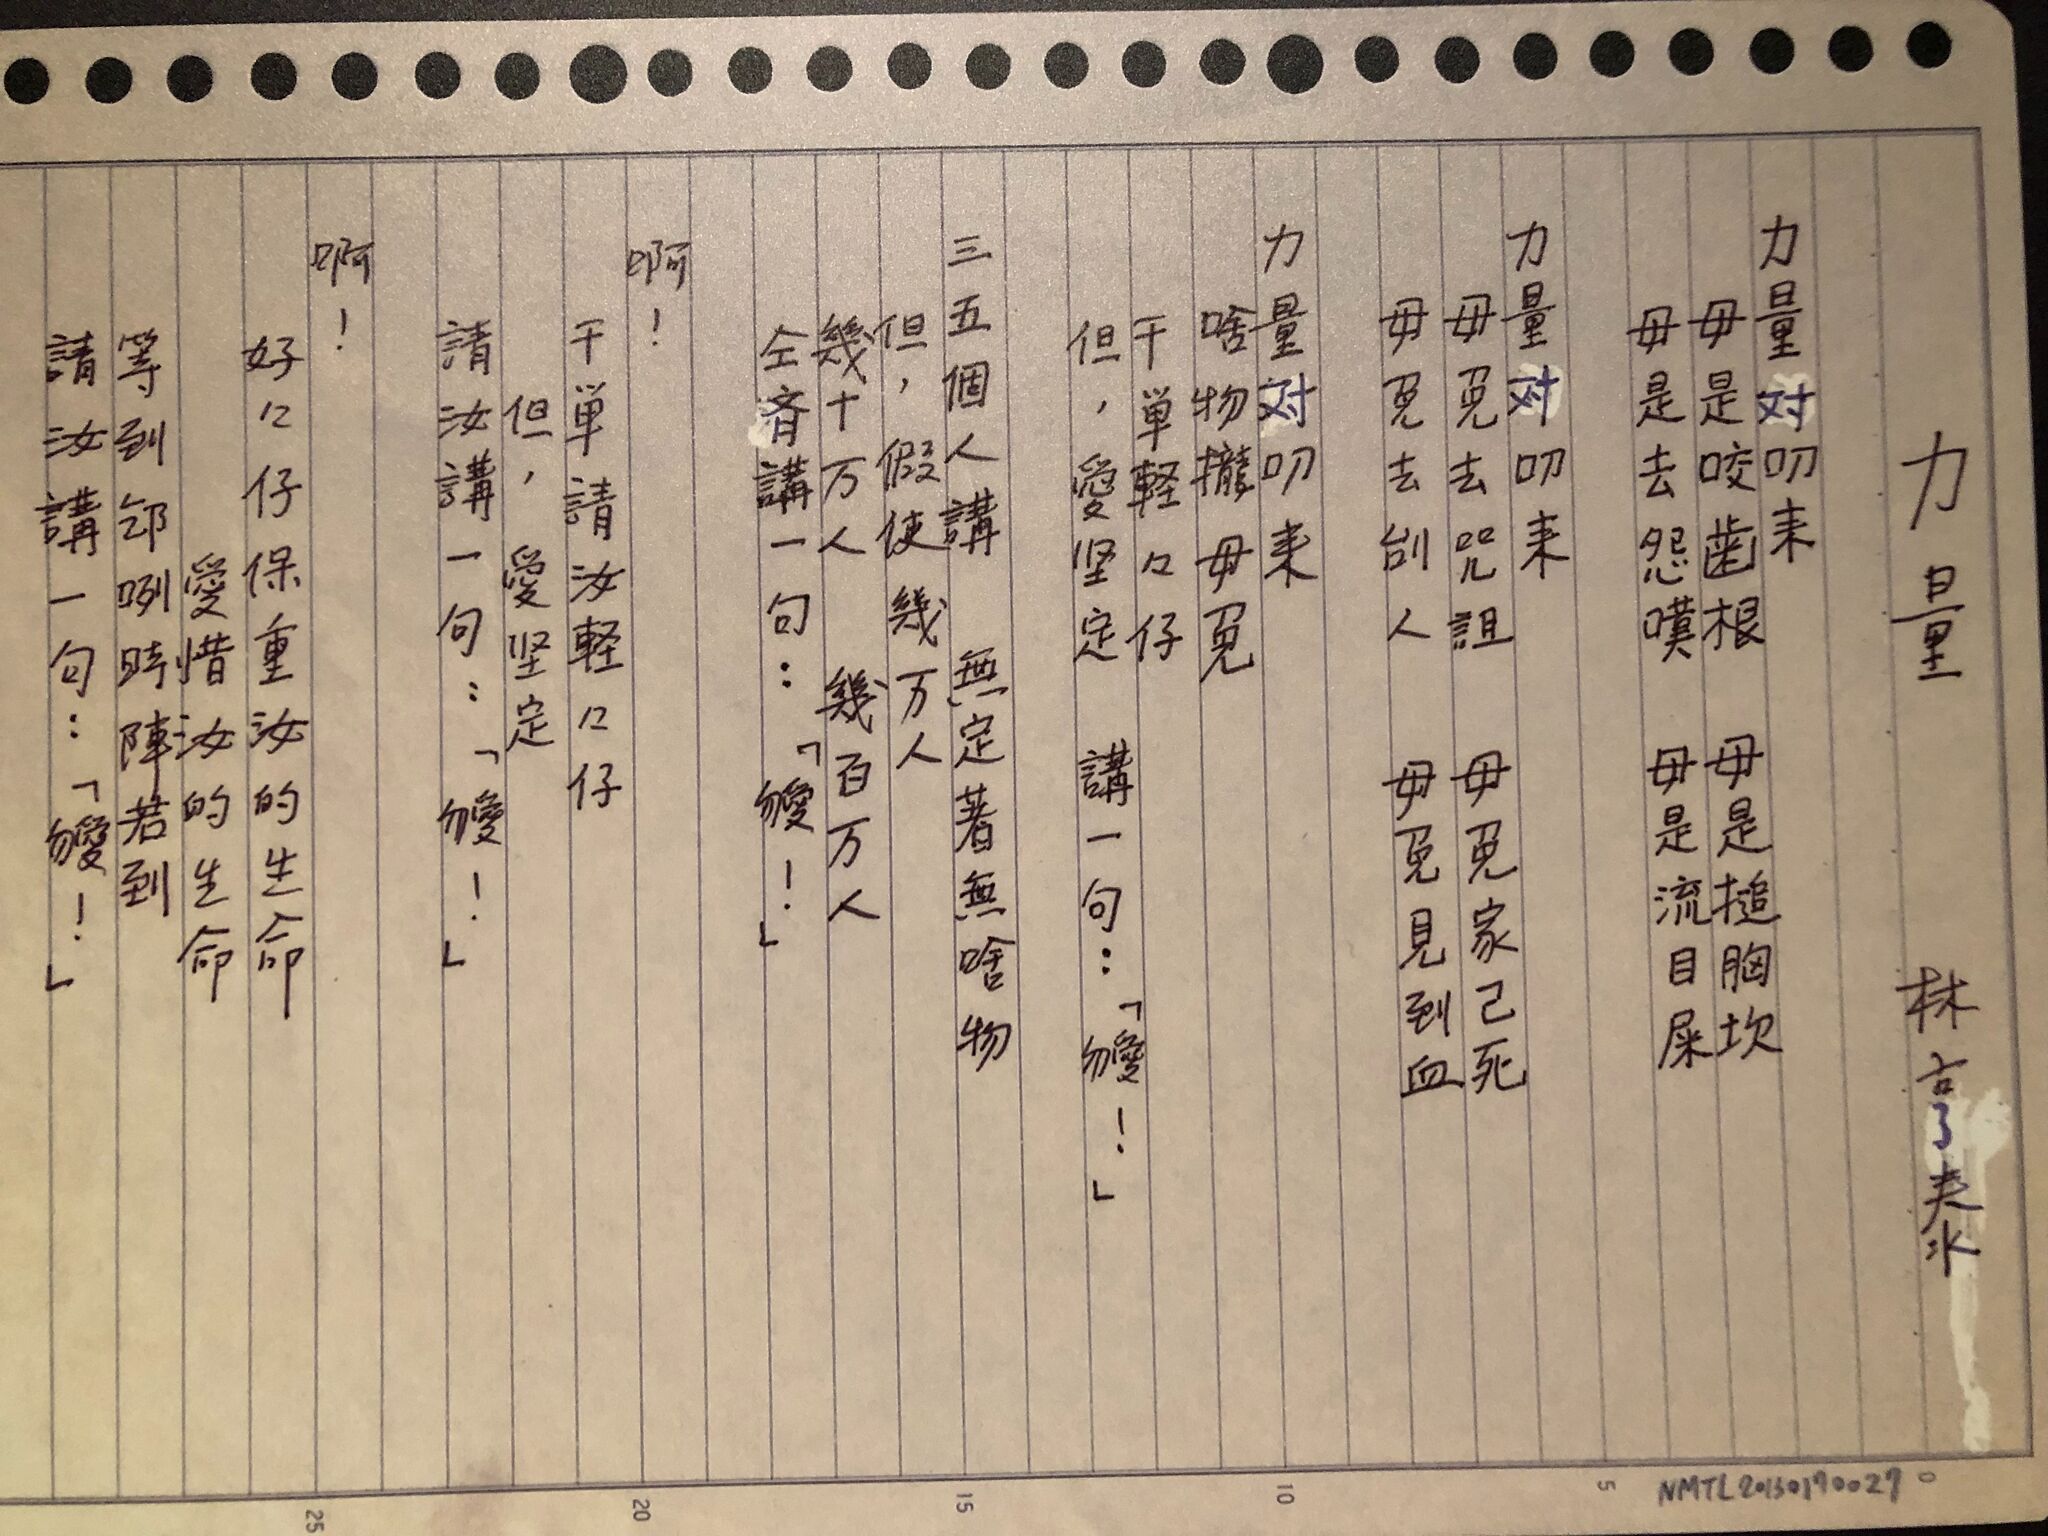 力量　林亨泰
力量対叨来
毋是咬歯根　毋是搥胸坎
毋是去怨嘆　毋是流目屎
力量対叨来
毋免去咒詛　毋免家己死
毋免去刣人　毋免見到血
力量対叨来
啥物攏毋免
干単軽々仔
但，愛坚定　講一句：「勿愛！」
三五個人講　無定著無啥物
但，假使幾万人
幾十万人　幾百万人
仝斉講一句：「勿愛！」
啊！
干単請汝軽々仔
但，愛坚定
請汝講一句：「勿愛！」
啊！
好々仔保重汝的生命
愛惜汝的生命
等到卲咧時陣若到
請汝講一句：「勿愛！」
NMTL20130170027
0
5
10
15
20
25